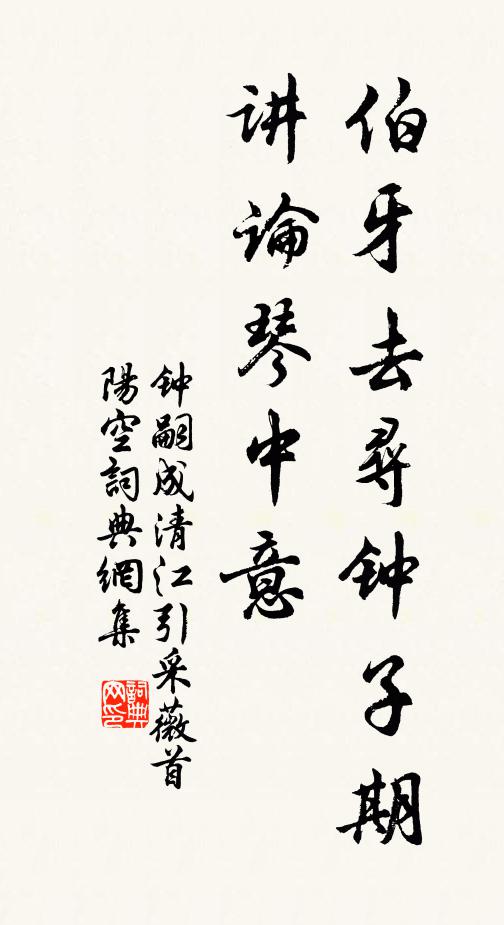 伯牙去尋钟子期
讲論琴中意
钟嗣成清江引采薇首
陽空詞典網集
詞典网印